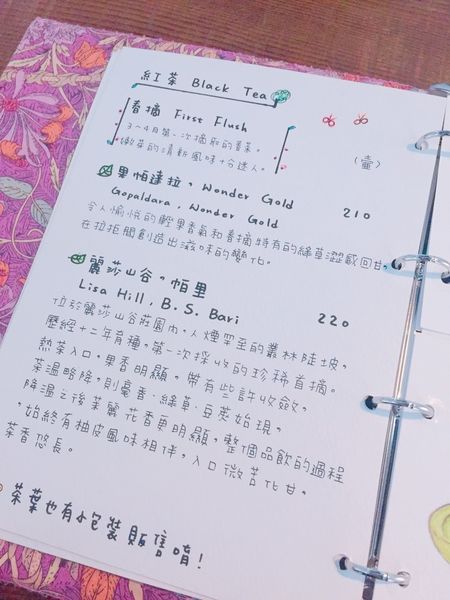 紅茶 Black Tea
春摘 First Flush
3~4月第一次摘取的春茶。
嫩葉的清新風味十分迷人。
(壺)
果帕達拉。Wonder Gold
Gopaldara, Wonder Gold 210
令人愉悅的輕果香氣和春摘特有的綠草澀感回甘。
在拉拒間創造出滋味的變化。
麗莎山谷。帕里
Lisa Hill, B.S. Bari 220
位於麗莎山谷莊園內，人煙罕至的叢林陡坡，
歷經十二年育種，第一次採收的珍稀首摘。
熱茶入口，果香明顯，帶有些許收斂，
茶溫略降，則毫香、綠草、豆莢始現，
降溫之後茉麗花香更明顯，整個品飲的過程
，始終有柚皮風味相伴，入口微苦化甘，
茶香悠長。
茶葉也有小包裝販售唷！